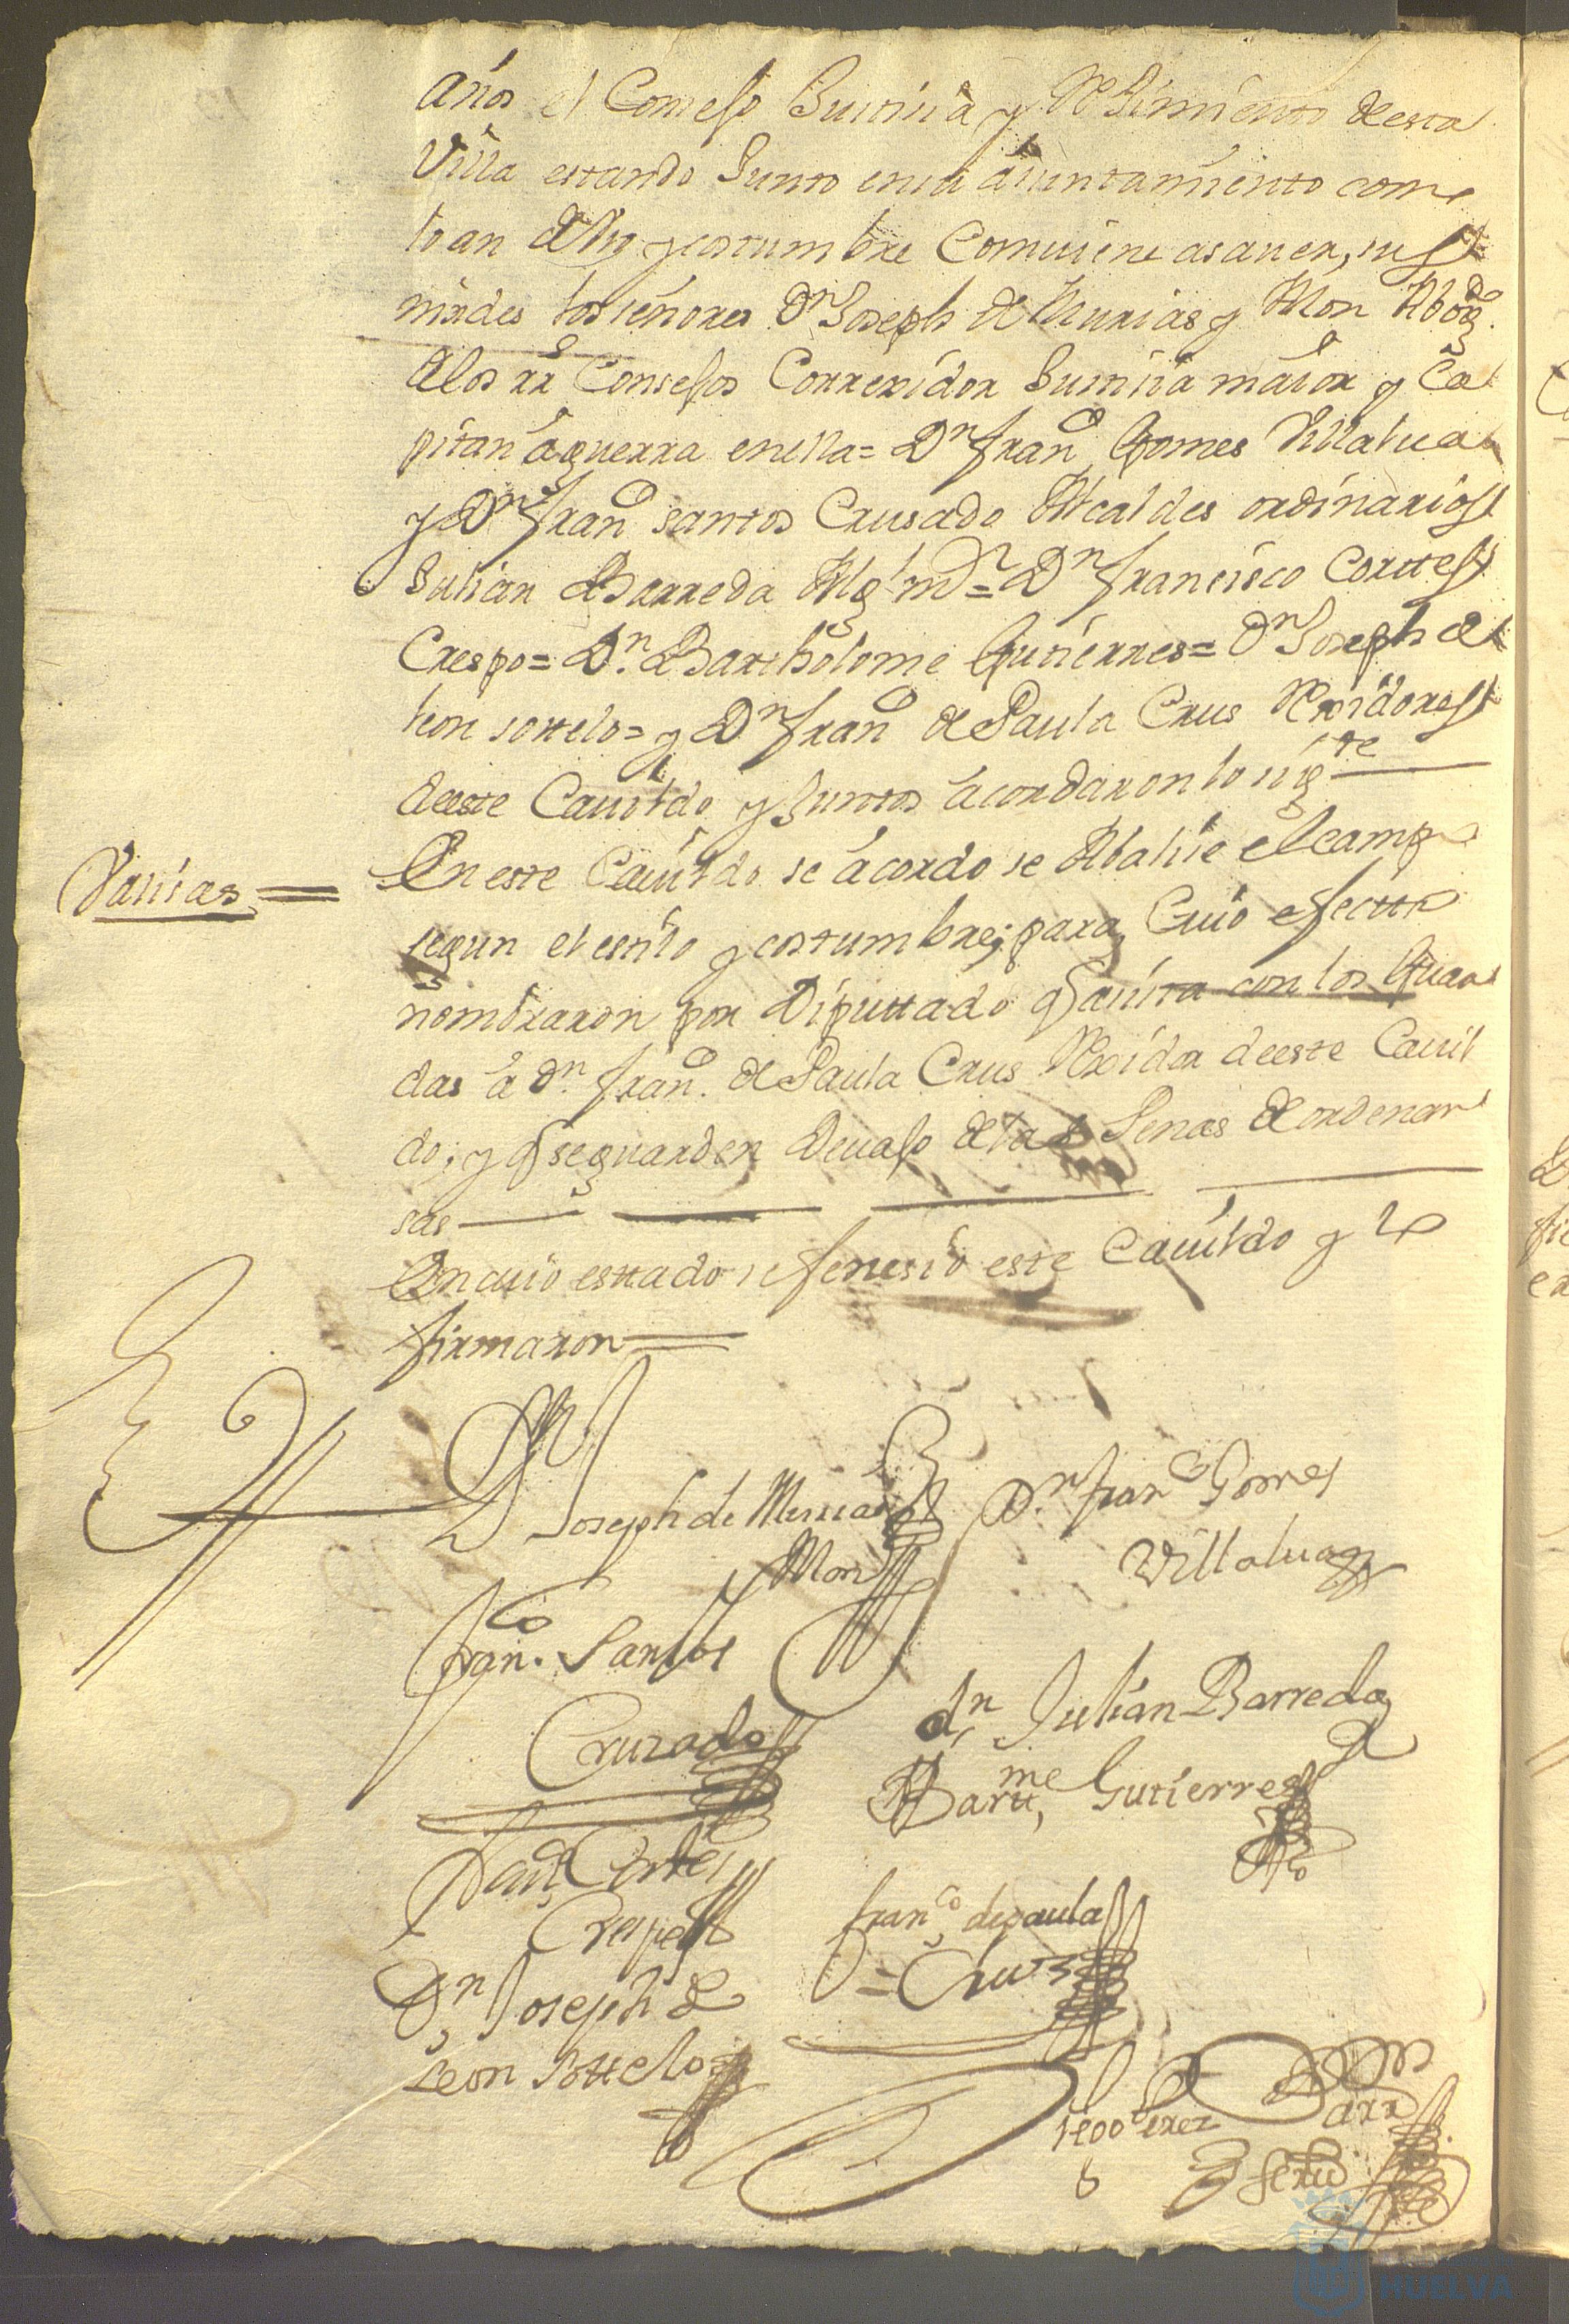 años el Consejo Justicia y Reximiento de esta
Villa estando Junto en su aiuntamiento como
lo an de Uso y costumbre Comviene asaver, sus
mrdes los señores Dn Joseph de Murias y Mon Abogdo
de los rs Consejos Correxidor Justicia maior y Ca
pitan a guerra en ella = Dn Franco Gomes Villalua
y Dn Franco santos Crusado Alcaldes ordinarios
Julian Barreda Algl mr = Dn Francisco Corttes
Crespo = Dn Bartholome Gutierres = Dn Joseph de
leon sottelo = y Dn Franco de Paula Crus Rexidores
de este Cavildo y Juntos acordaron lo sigte
Vallias =
En este Cavildo se acordo se Abalie el campo
segun el estilo y costumbre; para Cuio efectto
nombraron por Diputtado q asista con los Guar
das a Dn Franco de Paula Crus Rexidor de este Cavil
do; y q se guarden Devajo de las Penas de ordenan
sas
En cuio esttado se fenesio este Cavildo y lo
firmaron =
Dn Joseph de Murias
y Mon
Dn Franco Gomes
Villalua
Franco Santos
Cruzado
dn Julian Barreda
Barttme Gutierres
Franco Cortes
Crespo
Franco de paula
= Cruz
Dn Joseph de
Leon Sottelo
Perez